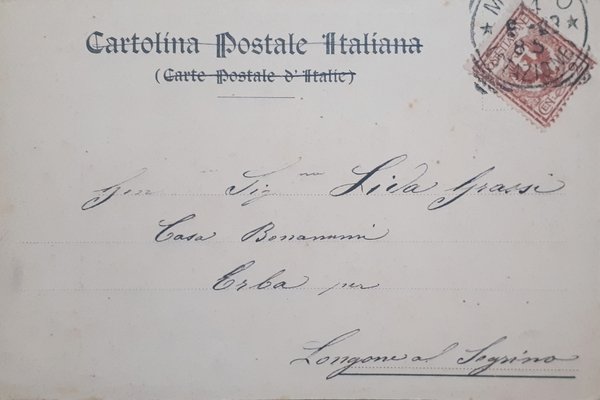 Cartolina Postale Italiana
(Carte Postale d'Italie)
Gen Signa Lida Grassi
Casa Bonanomi
Erba per
Longone al Segrino